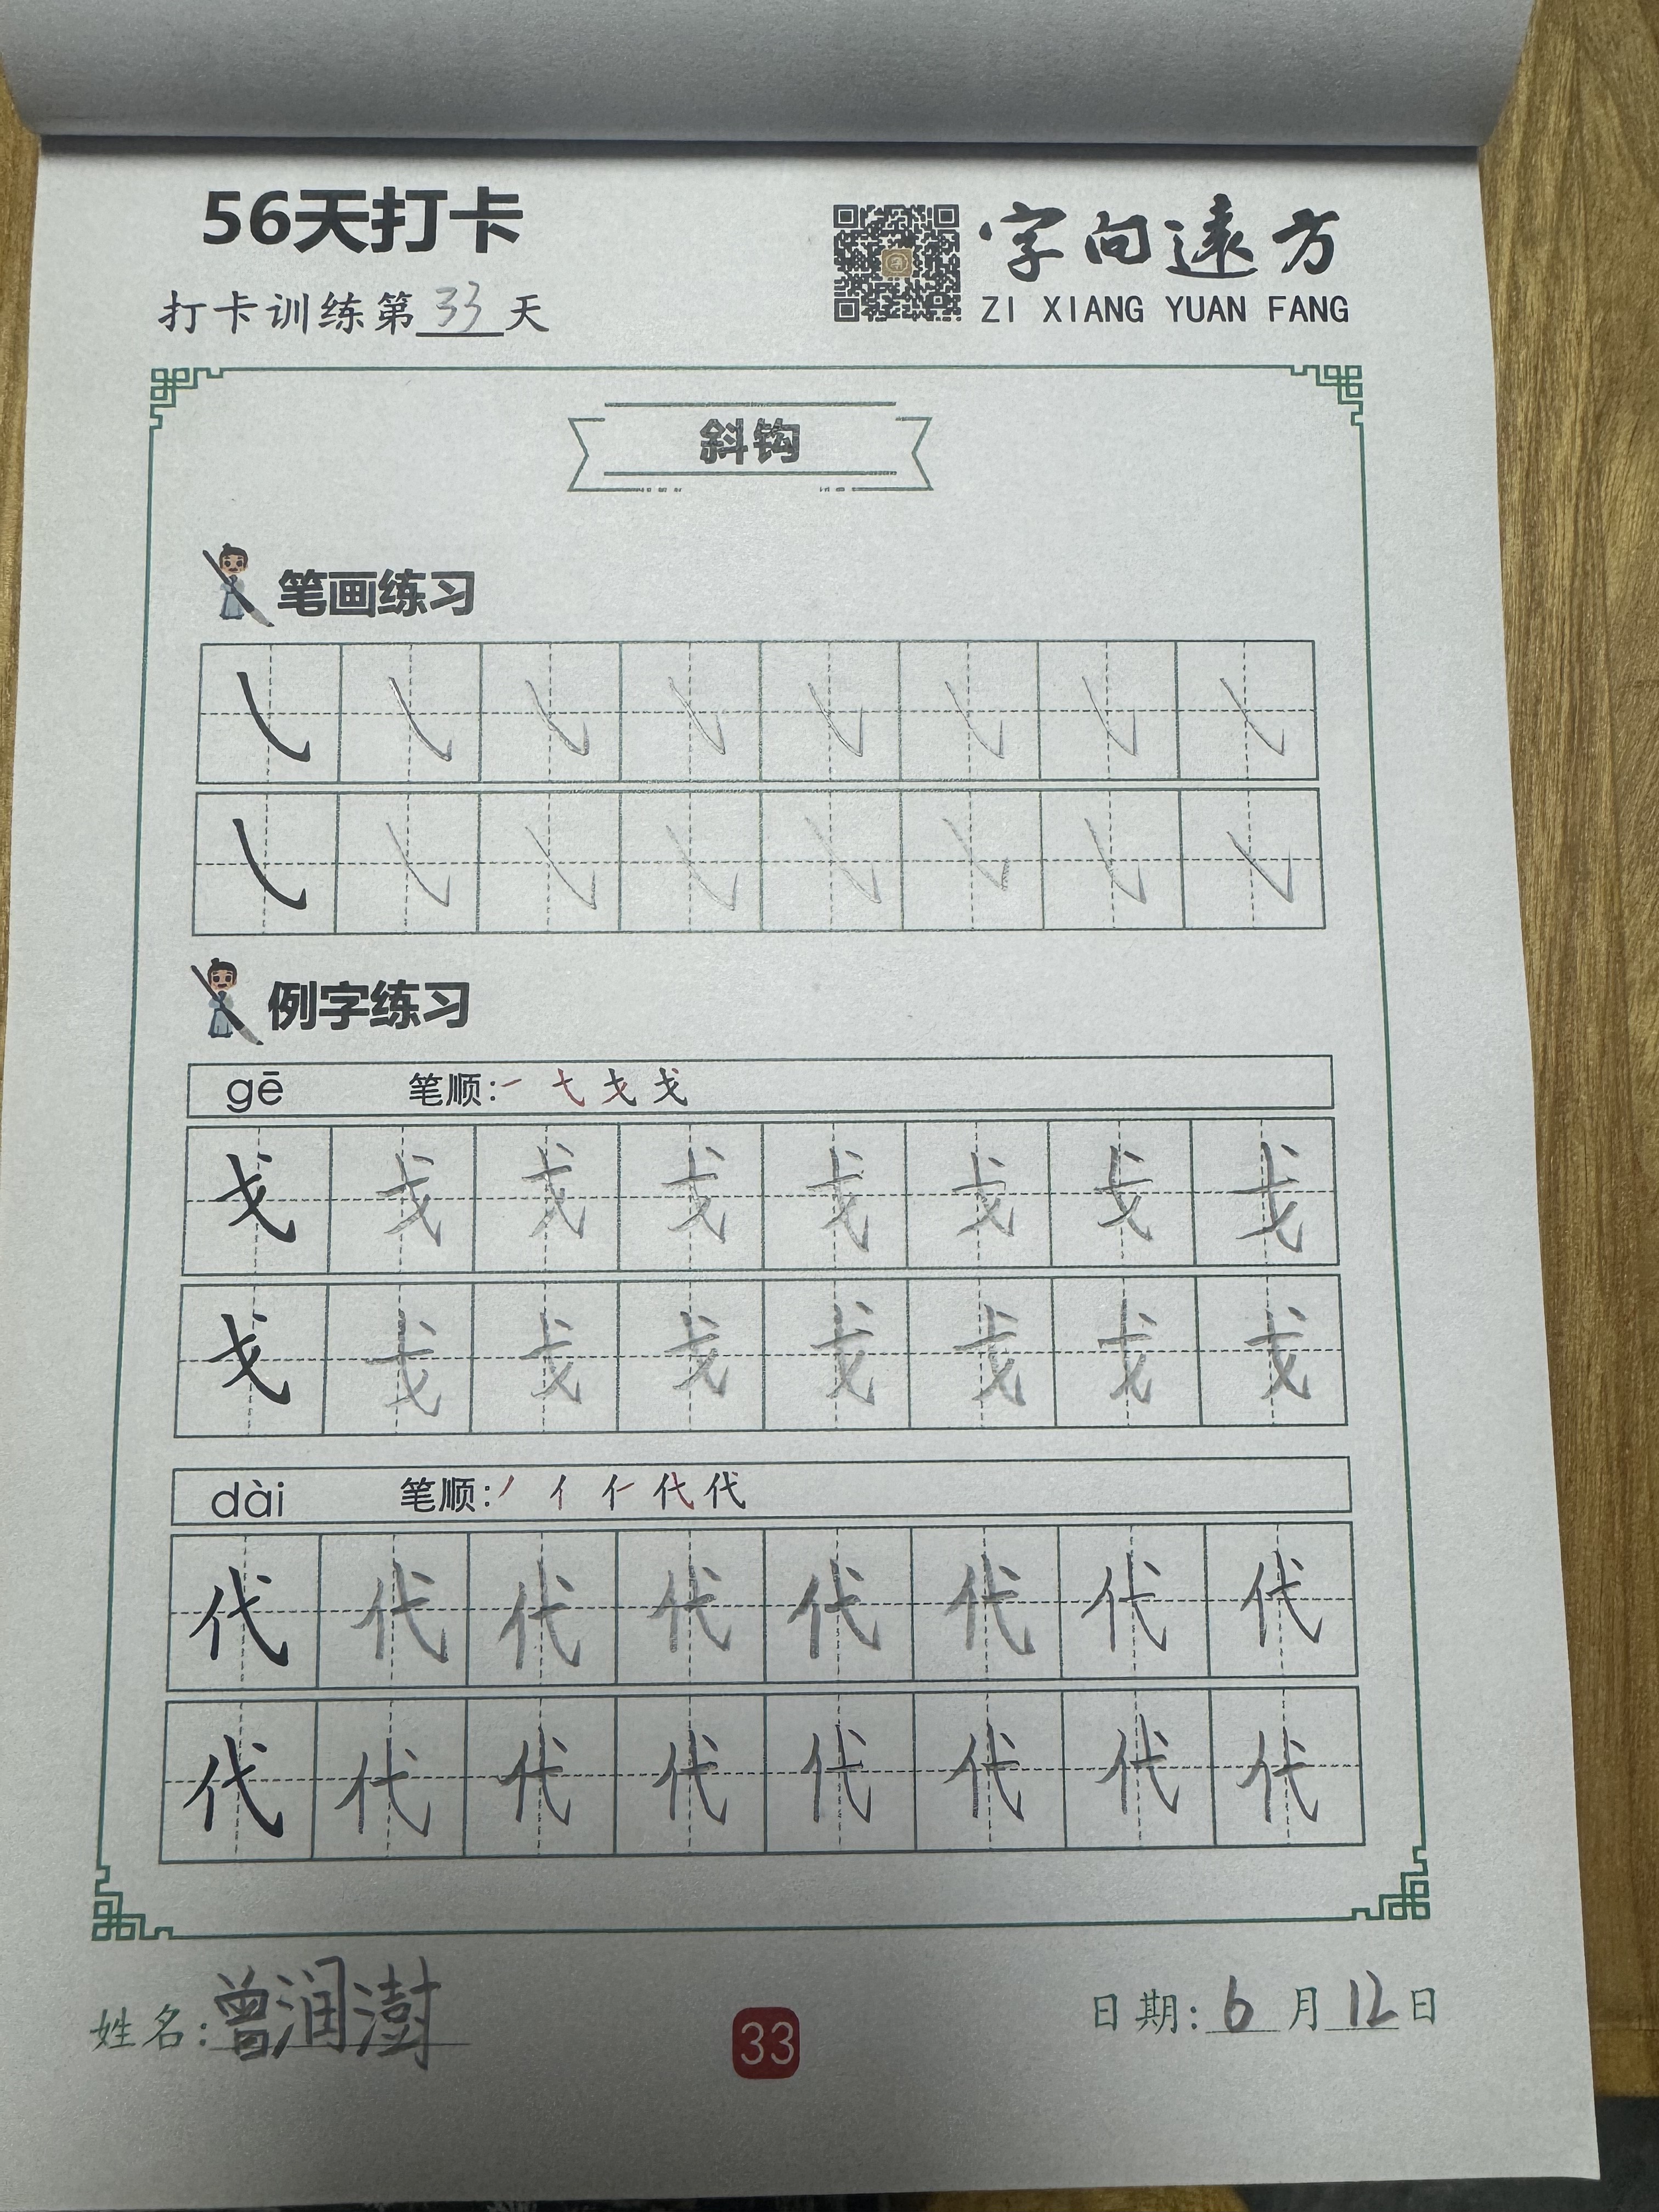 56天打卡
字向遠方
打卡训练第33天
ZI XIANG YUAN FANG
斜钩
笔画练习
㇂ ㇂ ㇂ ㇂ ㇂ ㇂ ㇂ ㇂
㇂ ㇂ ㇂ ㇂ ㇂ ㇂ ㇂ ㇂
例字练习
gē 笔顺: 一 弋 戈 戈
戈 戈 戈 戈 戈 戈 戈 戈
戈 戈 戈 戈 戈 戈 戈 戈
dài 笔顺: 丿 亻 仁 代 代
代 代 代 代 代 代 代 代
代 代 代 代 代 代 代 代
姓名:曾润澍
33
日期:6月12日